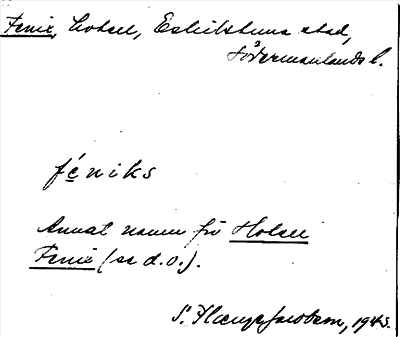 Fenix, hotell, Eskilstuna stad,
Södermanlands l.
féniks
Annat namn för Hotell
Fenix (se d.o.).
S. 1945.